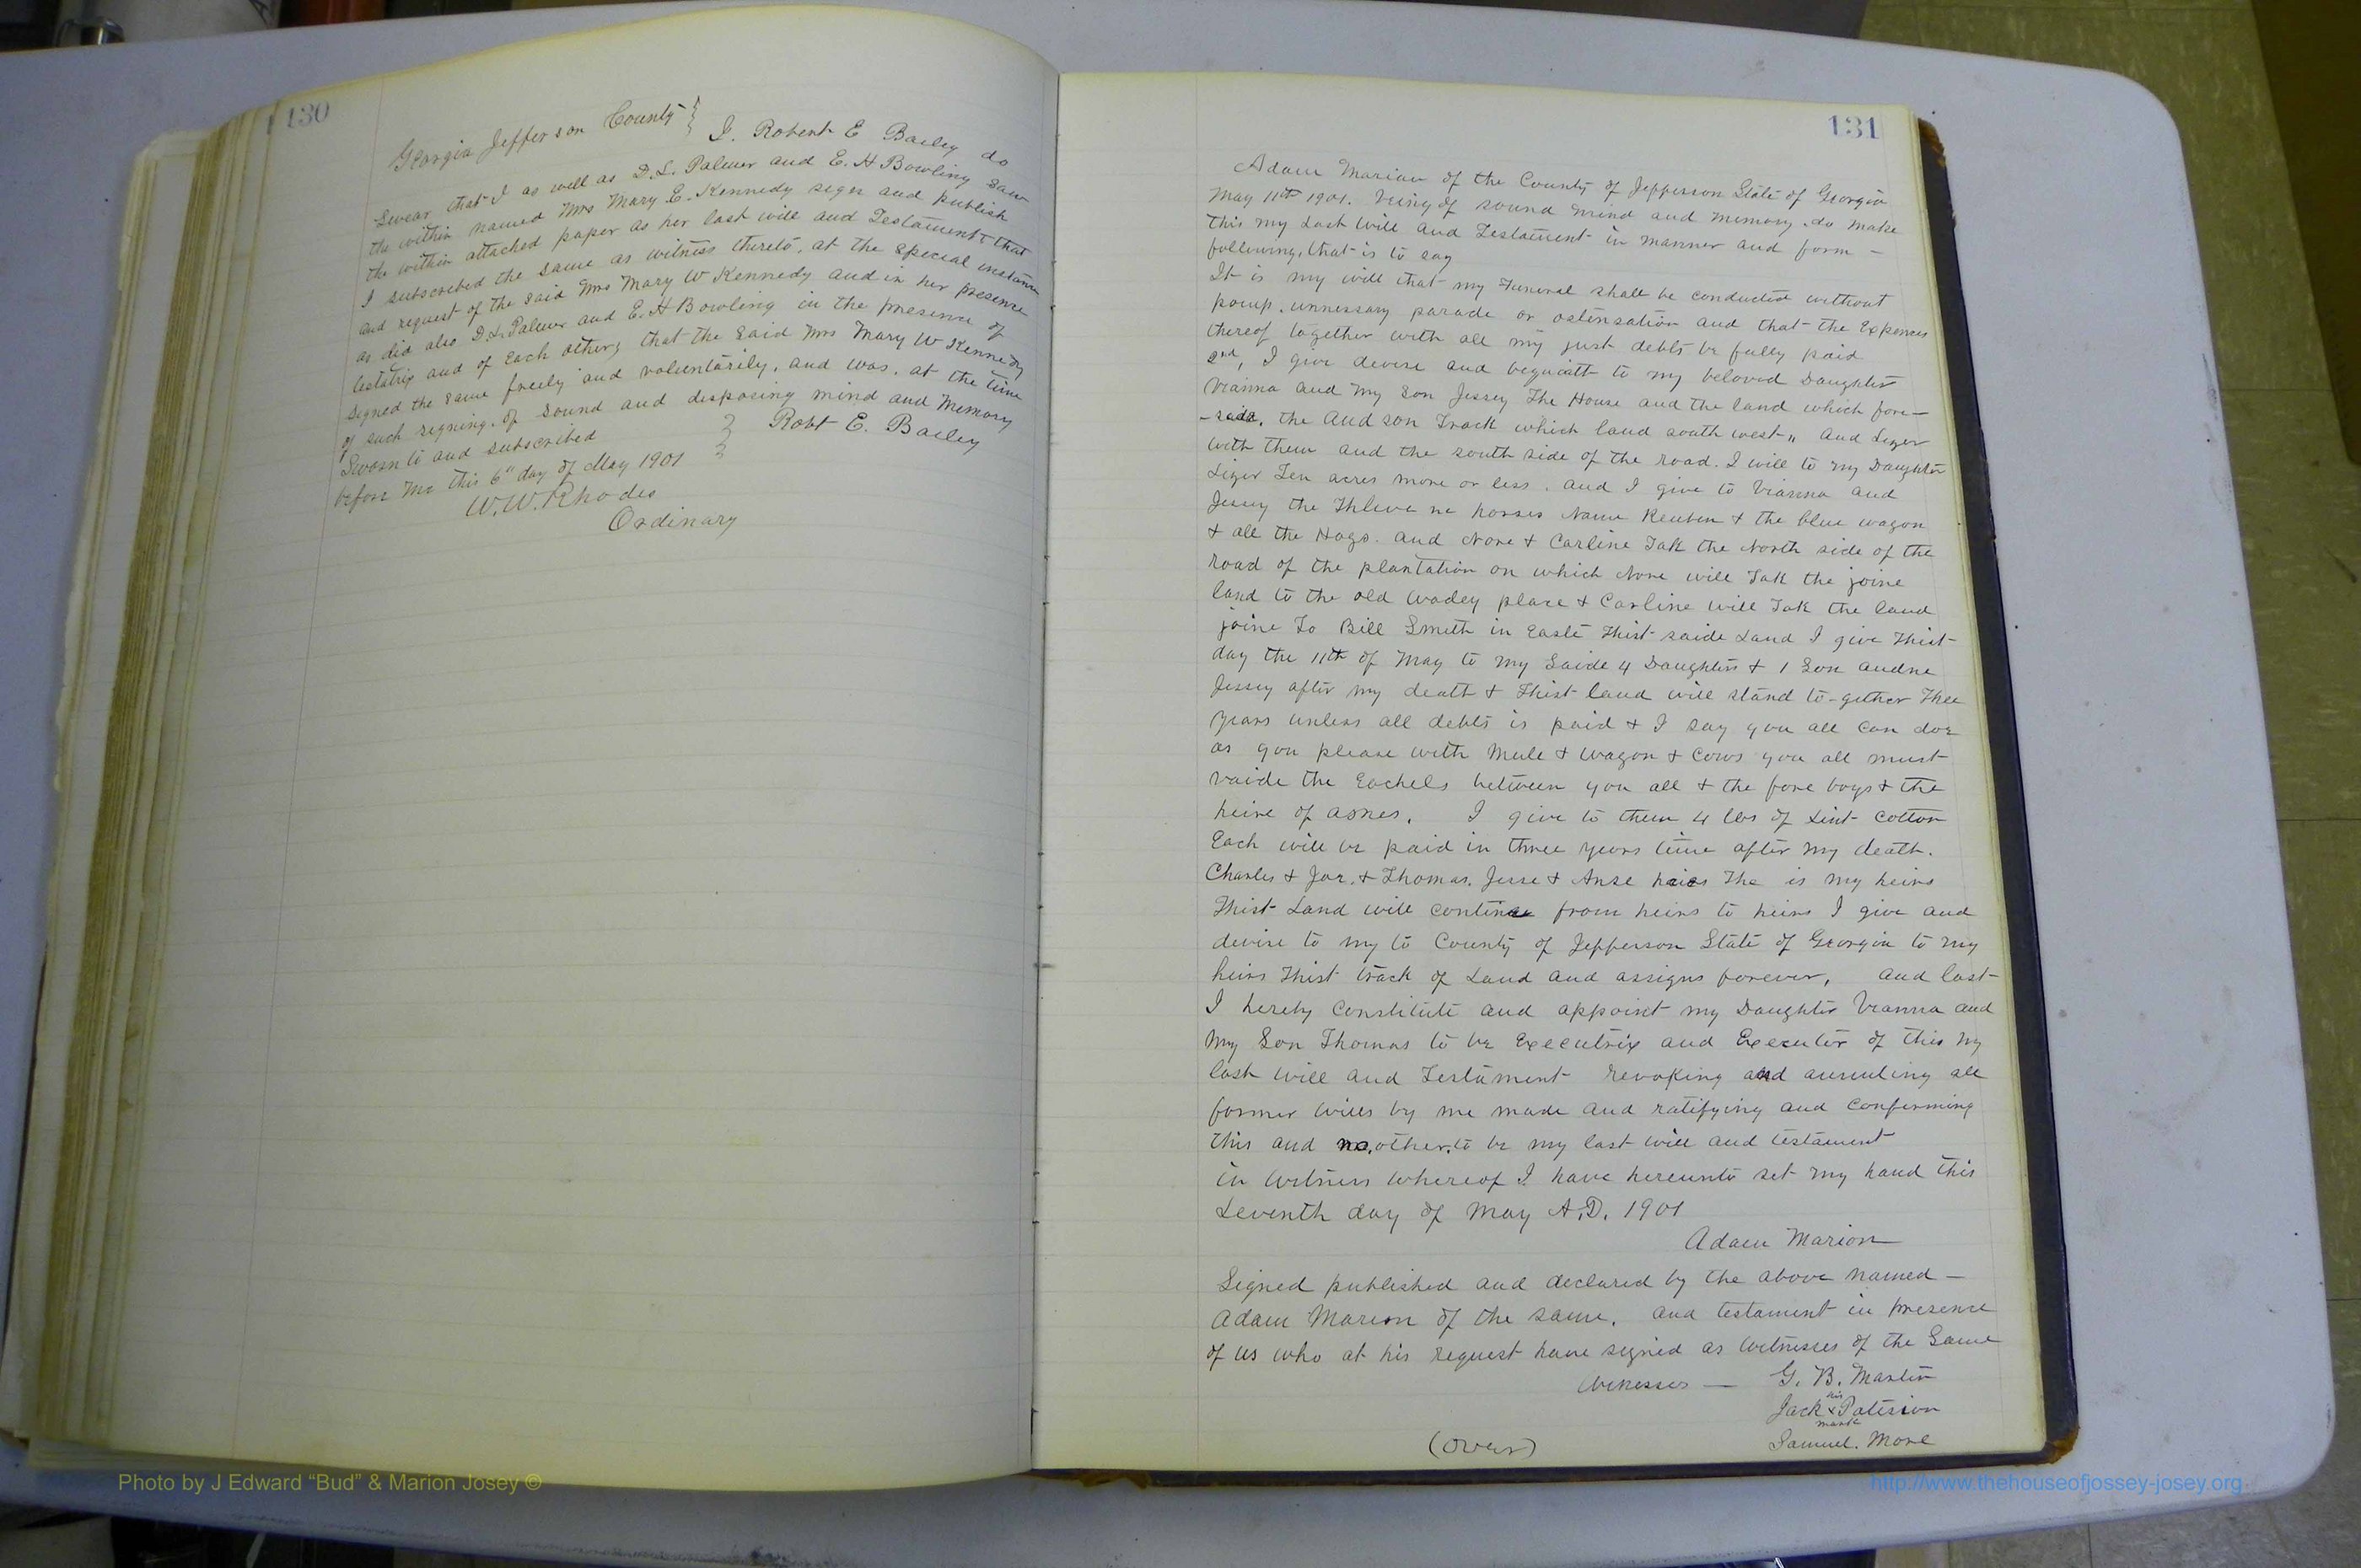 130
Georgia Jefferson County } I. Robert E Bailey do
Swear that I as well as D.L. Palmer and E. H Bowling saw
the within named Mrs Mary E. Kennedy sign and publish
the within attached paper as her last will and Testament, that
I subscribed the same as witness thereto, at the special instance
and request of the said Mrs Mary W Kennedy and in her presence
as did also D.L. Palmer and E. H Bowling in the presence of
testatrix and of each other; that the said Mrs Mary W Kennedy
signed the same freely and voluntarily, and was, at the time
of such signing, of sound and disposing mind and memory
Sworn to and subscribed } Robt E. Bailey
before me this 6" day of May 1901
W. W. Rhodes
Ordinary
131
Adam Marion of the County of Jefferson State of Georgia
May 11th 1901. being of sound mind and memory, do make
this my Last Will and Testament in manner and form -
following, that is to say
It is my will that my Funeral shall be conducted without
pomp, unnessary parade or ostensation and that the Expenses
thereof together with all my just debts be fully paid
2nd, I give devise and bequeatt to my beloved Daughter
Vianna and my son Jessey The House and the land which fore-
-sada, the and son Track which land south west " and Liger
with them and the south side of the road. I will to my Daughter
Liger Ten acres more or less. and I give to Vianna and
Jessey the horses Name Reuben & the blue wagon
& all the Hogs. and Nore & Carline Tak the North side of the
road of the plantation on which Nore will Tak the joine
land to the old Wadey place & Carline will Tak the land
joine To Bill Smith in Easte Thist saide Land I give Thist
day the 11th of May to my Saide 4 Daughters & 1 Son andne
Jessey after my death & Thist land will stand to-gether Thee
years unless all debts is paid & I say you all can doe
as you please with Mule & Wagon & Cows you all must
vaide the Eachels between you all & the fore boys & the
heire of Agnes. I give to them 4 lbs of Lint Cotton
Each will be paid in three years time after my death.
Charles & Joe, & Thomas, Jesse & Anse heirs The is my heirs
Thist Land will continue from heirs to heirs I give and
devise to my to County of Jefferson State of Georgia to my
heirs Thist track of Land and assigns forever, and last
I hereby Constitute and appoint my Daughter Vianna and
my Son Thomas to be Executrix and Executor of this my
last will and Testament revoking and annuling all
former wills by me made and ratifying and confirming
this and no, other, to be my last will and testament
in Witness whereof I have hereunto set my hand this
Leventh day of May A.D. 1901
Adam Marion
Signed published and declared by the above named -
Adam Marion of the same, and testament in presence
of us who at his request have signed as Witnesses of the Same
Witnesses - G. B. Martin
Jack his x mark Patision
Samuel. More
(over)
Photo by J Edward “Bud” & Marion Josey ©
http://www.thehouseofjossey-josey.org